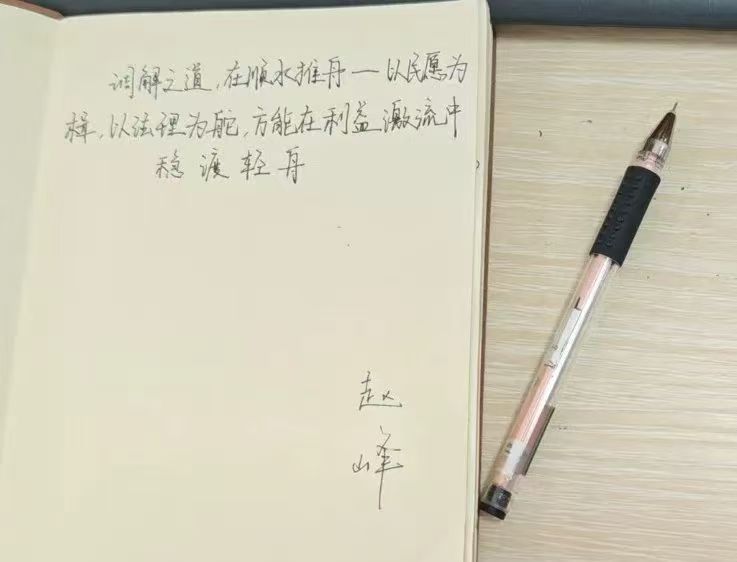 调解之道,在顺水推舟—以民愿为
楫,以法理为舵,方能在利益激流中
稳渡轻舟
赵
峰